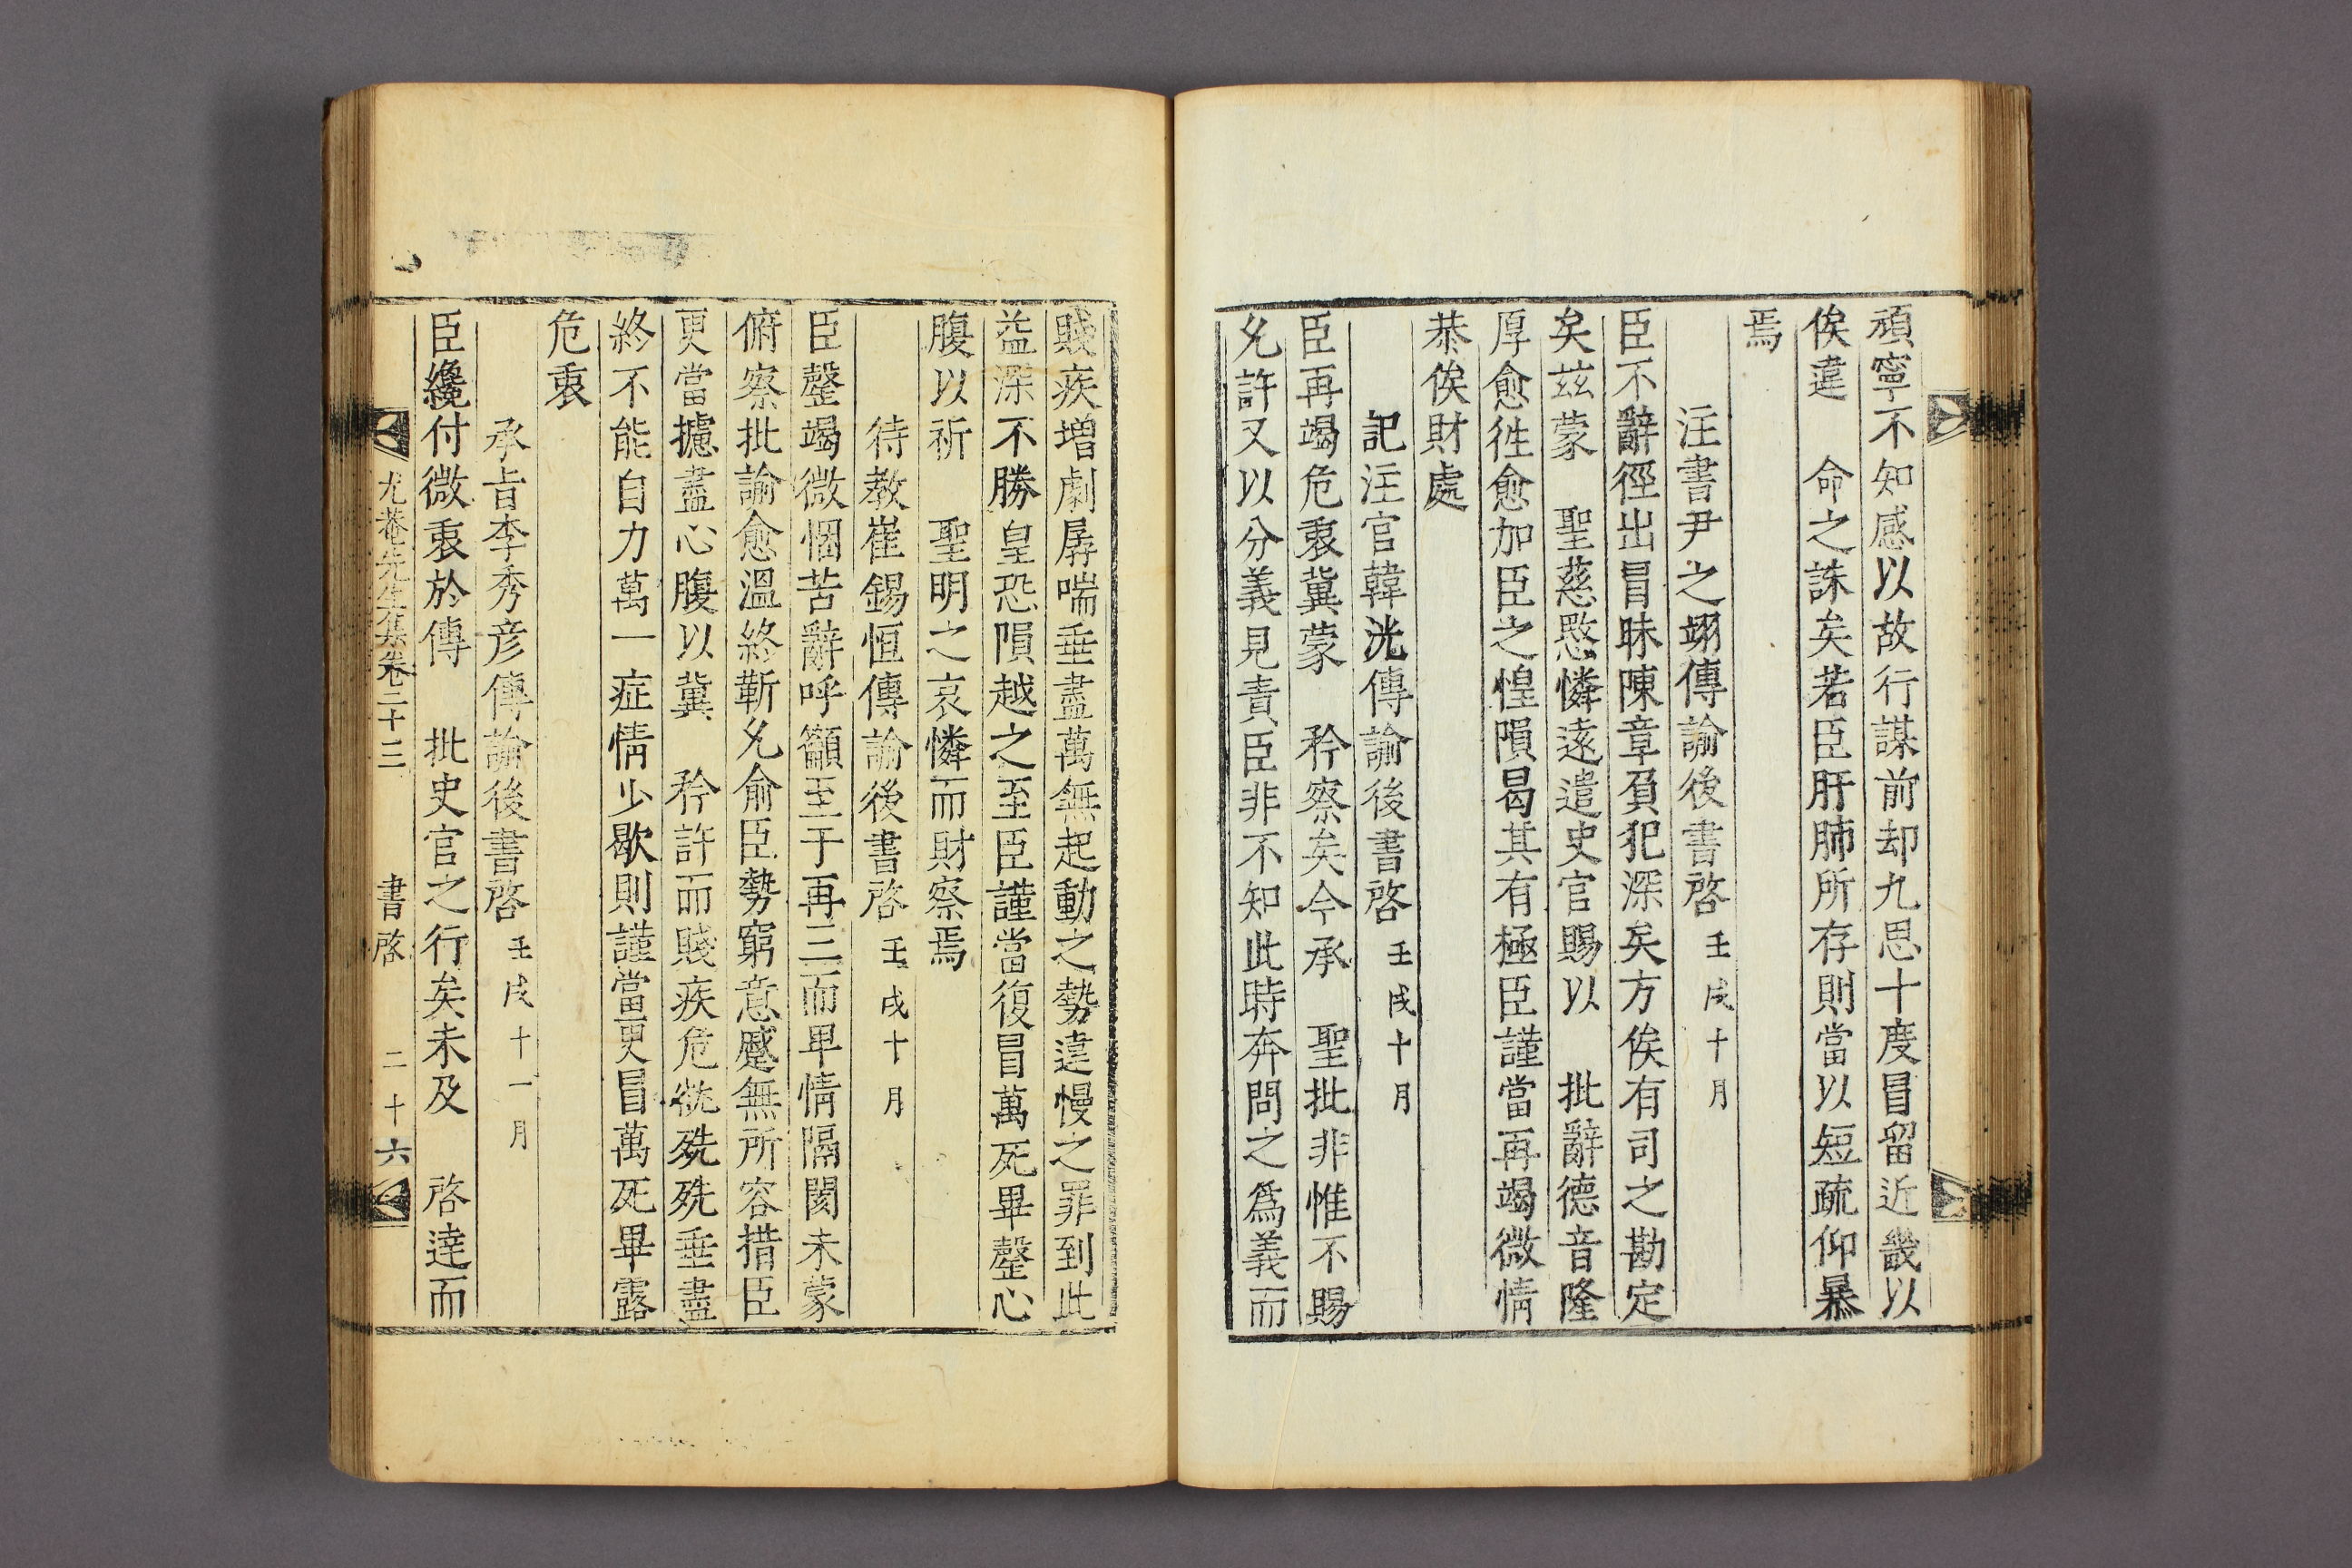 頑寧不知感以故行謀前却九思十度冒留近畿以
俟違　命之誅矣若臣肝肺所存則當以短疏仰暴
焉
注書尹之翊傳諭後書啓 壬戌十月
臣不辭徑出冒昧陳章負犯深矣方俟有司之勘定
矣玆蒙　聖慈愍憐遠遣史官賜以　批辭德音隆
厚愈徃愈加臣之惶隕曷其有極臣謹當再竭微情
恭俟財處
記注官韓洸傳諭後書啓 壬戌十月
臣再竭危衷冀蒙　矜察矣今承　聖批非惟不賜
允許又以分義見責臣非不知此時奔問之爲義而
賤疾增劇孱喘垂盡萬無起動之勢違慢之罪到此
益深不勝皇恐隕越之至臣謹當復冒萬死畢罄心
腹以祈　聖明之哀憐而財察焉
待敎崔錫恒傳諭後書啓 壬戌十月
臣罄竭微悃苦辭呼籲至于再三而卑情隔閡未蒙
俯察批諭愈溫終靳允俞臣勢窮意蹙無所容措臣
更當攄盡心腹以冀　矜許而賤疾危㲀㱡㱡垂盡
終不能自力萬一症情少歇則謹當更冒萬死畢露
危衷
承旨李秀彦傳諭後書啓 壬戌十一月
臣纔付微衷於傳　批史官之行矣未及　啓達而
尤菴先生集卷二十三　書啓　二十六